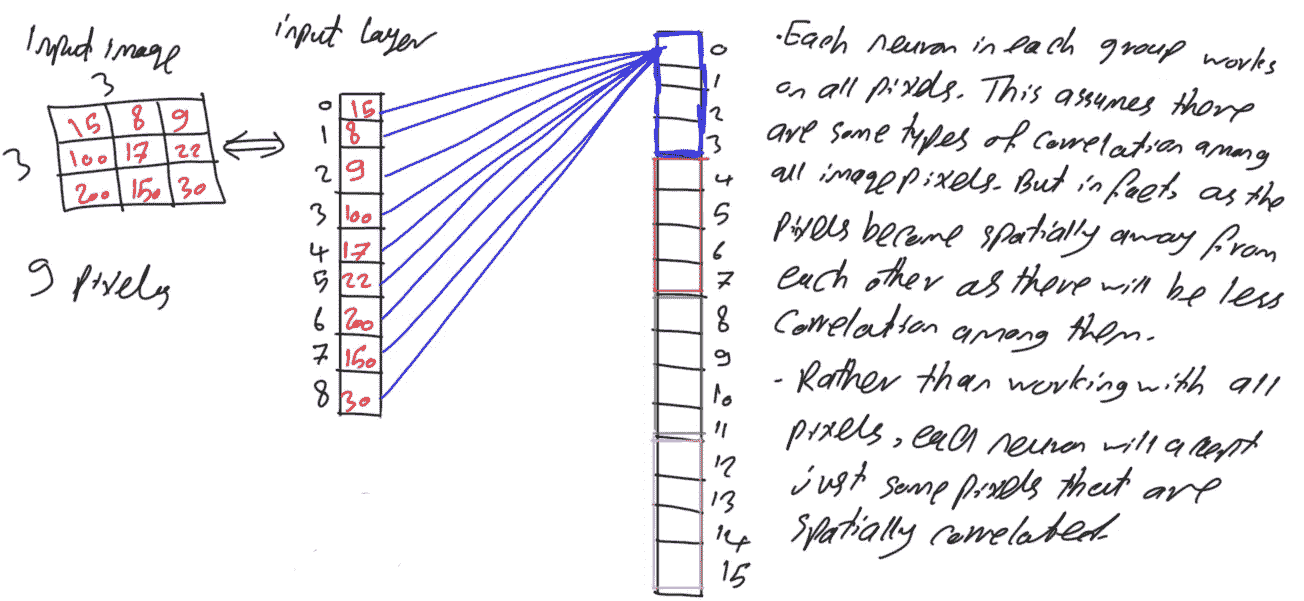 Input image
3
3
15 8 9
100 17 22
200 150 30
9 pixels
input layer
0 15
1 8
2 9
3 100
4 17
5 22
6 200
7 150
8 30
0
1
2
3
4
5
6
7
8
9
10
11
12
13
14
15
. Each neuron in each group works
on all pixels. This assumes there
are some types of correlation among
all image pixels. But in facts as the
pixels become spatially away from
each other as there will be less
correlation among them.
- Rather than working with all
pixels, each neuron will accept
just some pixels that are
spatially correlated.